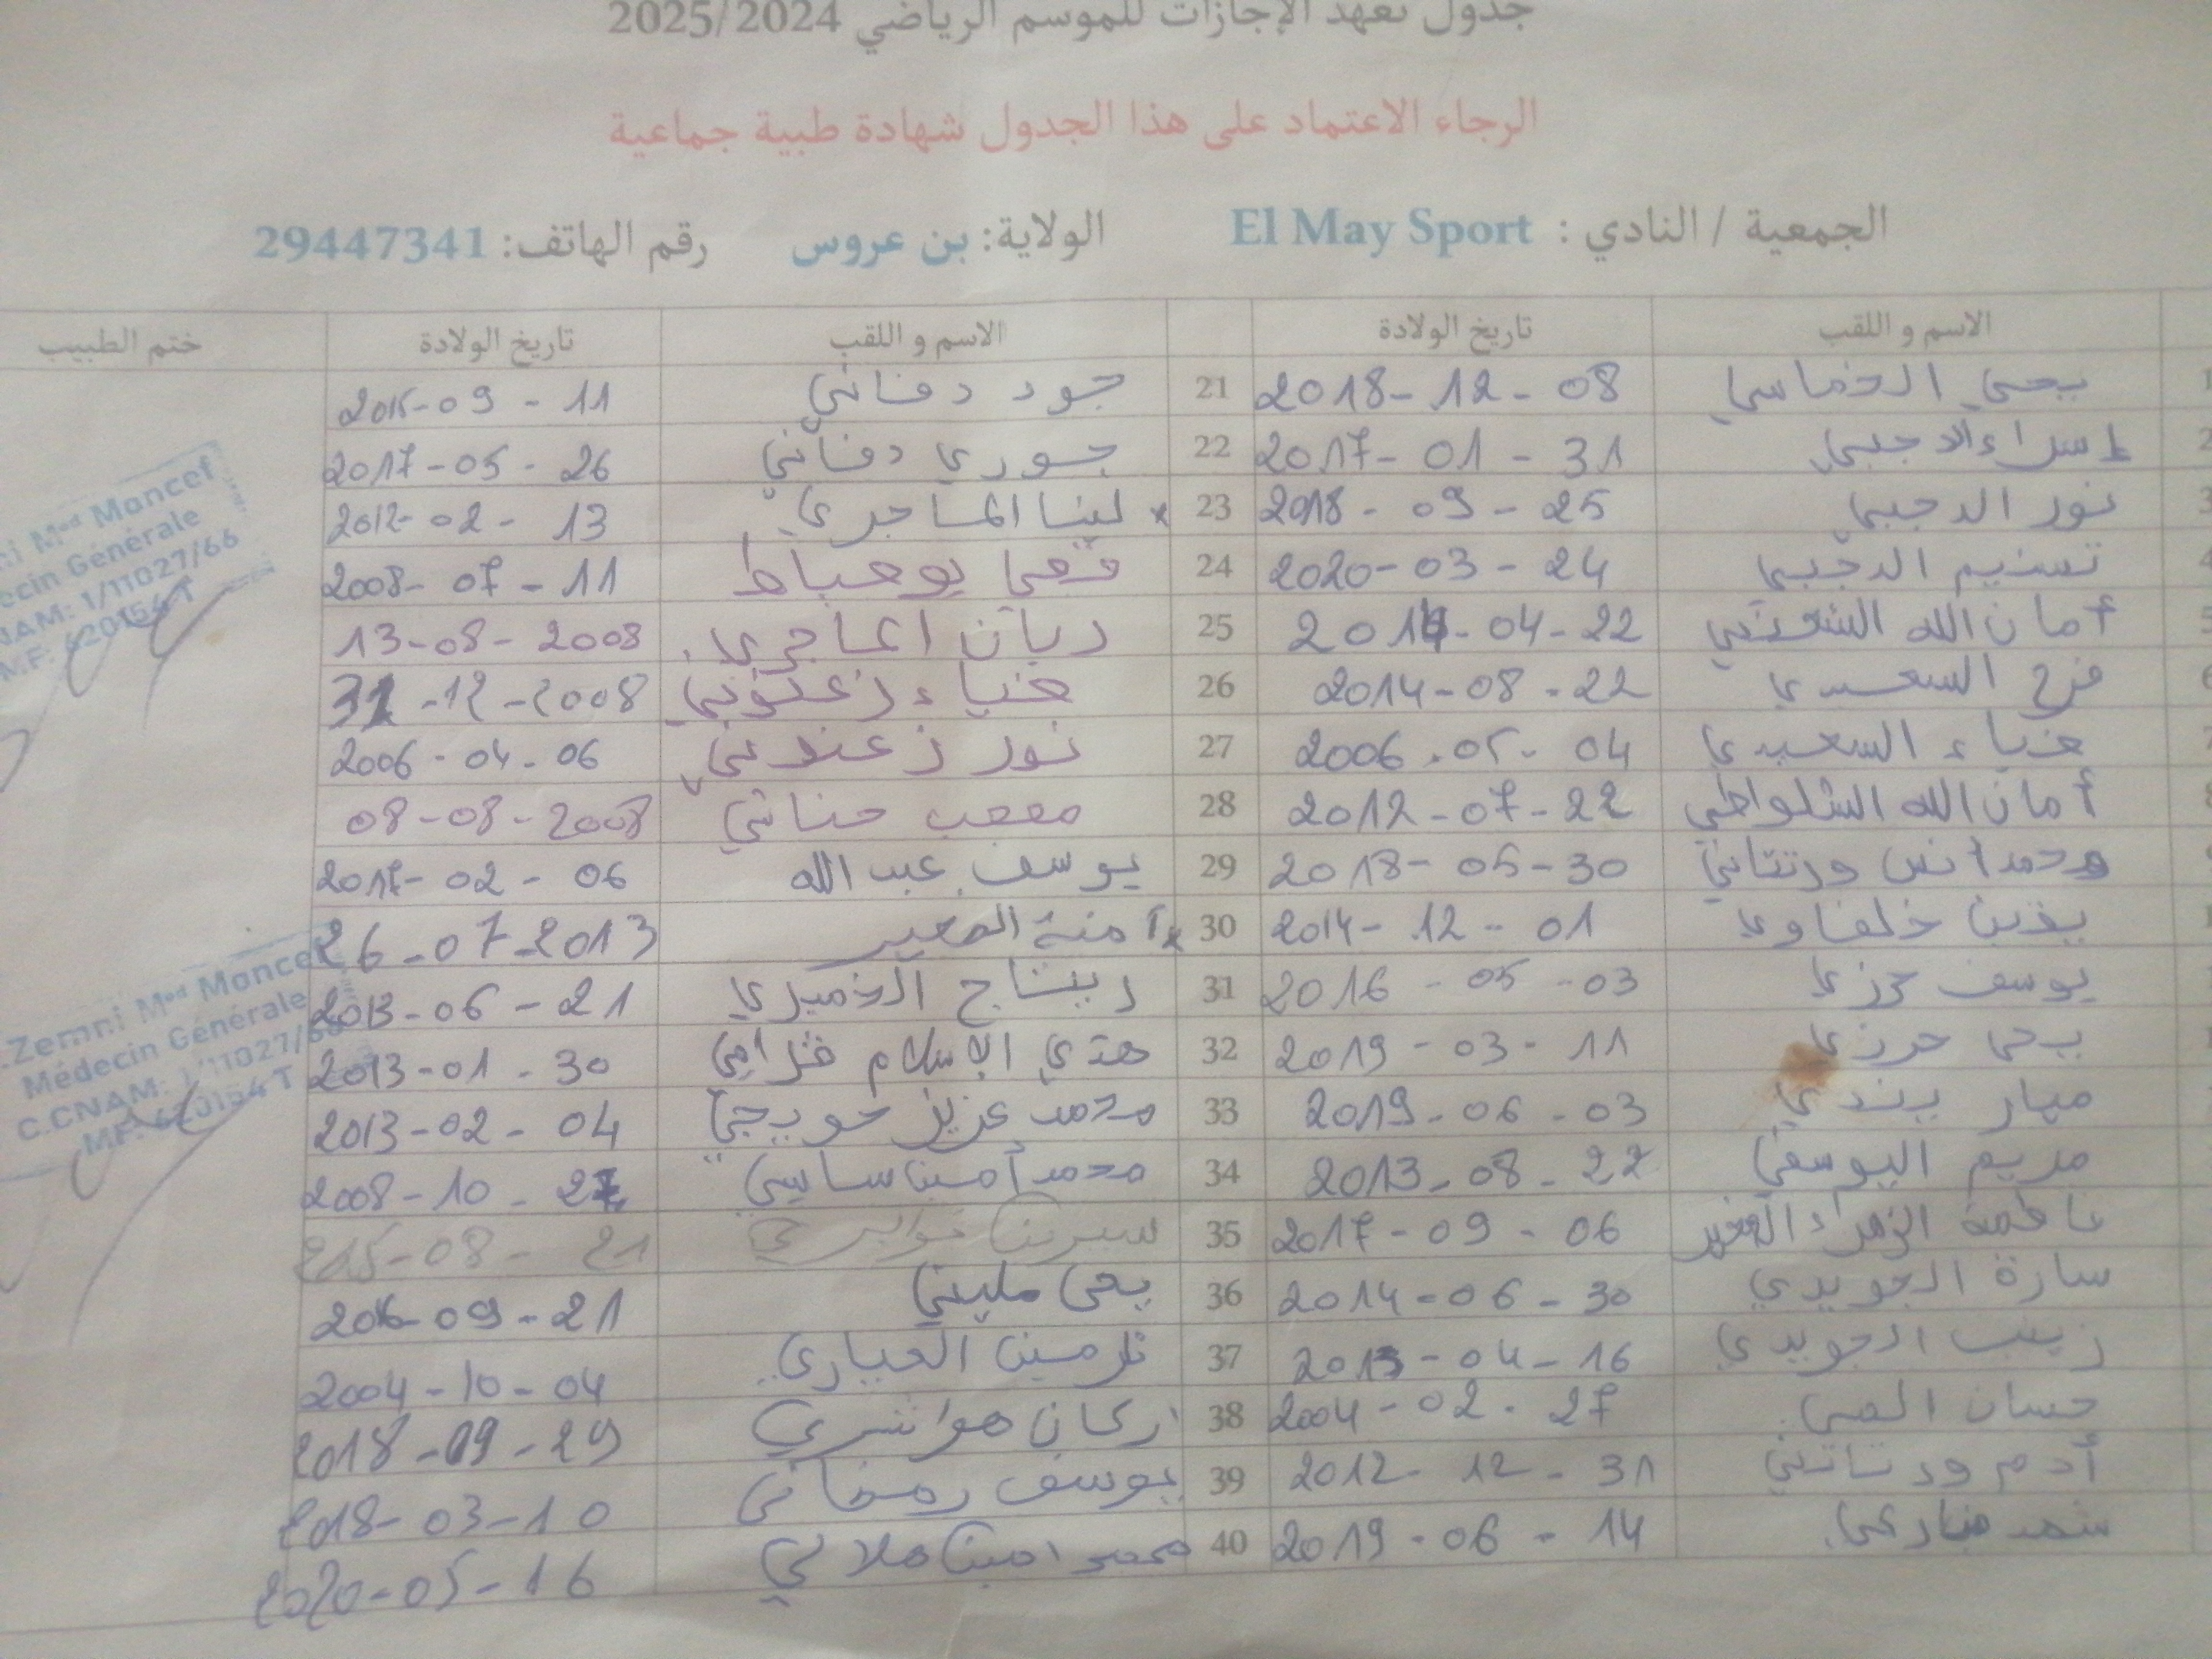 جدول تعهد الإجازات للموسم الرياضي 2025/2024
الرجاء الاعتماد على هذا الجدول شهادة طبية جماعية
الجمعية / النادي : El May Sport الولاية: بن عروس رقم الهاتف: 29447341
الاسم و اللقب تاريخ الولادة الاسم و اللقب تاريخ الولادة ختم الطبيب
يحيى الخماسي 2018-12-08 21 جود دفاني 2015-09-11
إسراء الدجبي 2017-01-31 22 جوري دفاني 2017-05-26
نور الدجبي 2018-09-25 23 لينا الماجري 2012-02-13
تسنيم الدجبي 2020-03-24 24 قصي بوعباط 2008-07-11
أمان الله 2014-04-22 25 ريان الماجري 13-08-2008
فرح السعيدي 2014-08-22 26 ضياء زعتوني 31-12-2008
ضياء السعيدي 2006-05-04 27 نور زعتوني 2006-04-06
أمان الله الشلواطي 2012-07-22 28 مصعب حناني 08-08-2008
محمد أنس ورتتاني 2018-05-30 29 يوسف عبد الله 2017-02-06
يقين خلفاوي 2014-12-01 30 آمنة الصغير 26-07-2013
يوسف حرزي 2016-05-03 31 ريتاج الخميري 2013-06-21
يحي حرزي 2019-03-11 32 هدي الإسلام 2013-01-30
ميار بندي 2019-06-03 33 محمد عزيز حويجي 2013-02-04
مريم اليوسفي 2013-08-22 34 محمد أمين ساسي 2008-10-27
فاطمة الزهراء الصغير 2017-09-06 35 سيرين 2015-08-21
سارة الجويدي 2014-06-30 36 يحي مليتي 2016-09-21
زينب الجويدي 2013-04-16 37 نرمين العياري 2004-10-04
حسان 2004-02-27 38 اركان هواشري 2018-09-29
أدم ورتتاني 2012-12-31 39 يوسف رمضاني 2018-03-10
شهد 2019-06-14 40 محمد امين ملالي 2020-05-16
Zemni Med Moncef
Médecin Générale
C.CNAM: 1/11027/66
M.F: 620154 T
Zemni Med Moncef
Médecin Générale
C.CNAM: 1/11027/66
MF: 620154 T